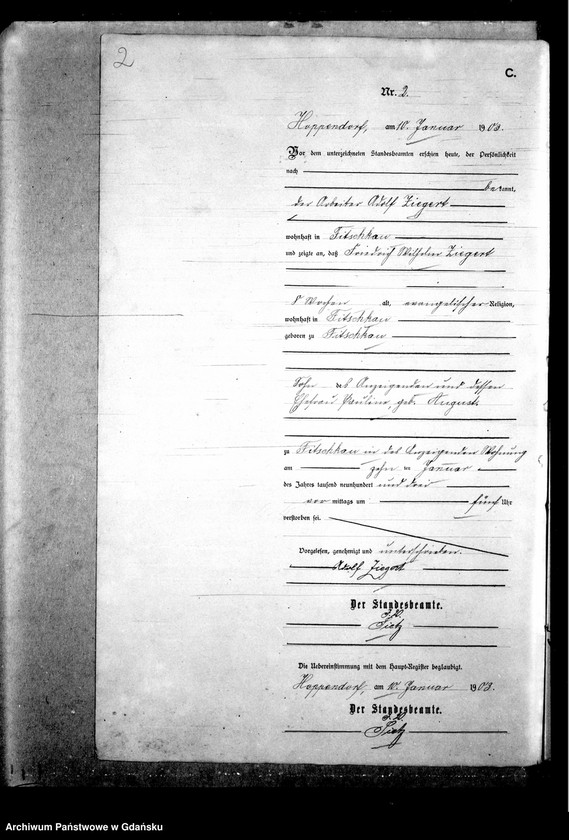 2
C.
Nr. 2.
Hoppendorf, am 10. Januar 1903.
Vor dem unterzeichneten Standesbeamten erschien heute, der Persönlichkeit
nach
bekannt,
der Arbeiter Adolf Ziegert
wohnhaft in Fitschkau
und zeigte an, daß Friedrich Wilhelm Ziegert
8 Wochen alt, evangelischer Religion,
wohnhaft in Fitschkau
geboren zu Fitschkau
Sohn des Anzeigenden und dessen
Ehefrau Pauline, geb. August
zu Fitschkau in des Anzeigenden Wohnung
am zehn ten Januar
des Jahres tausend neunhundert und drei
vor mittags um fünf Uhr
verstorben sei.
Vorgelesen, genehmigt und unterschrieben.
Adolf Ziegert
Der Standesbeamte.
Die Uebereinstimmung mit dem Haupt-Register beglaubigt.
Hoppendorf, am 10. Januar 1903.
Der Standesbeamte.
Archiwum Państwowe w Gdańsku